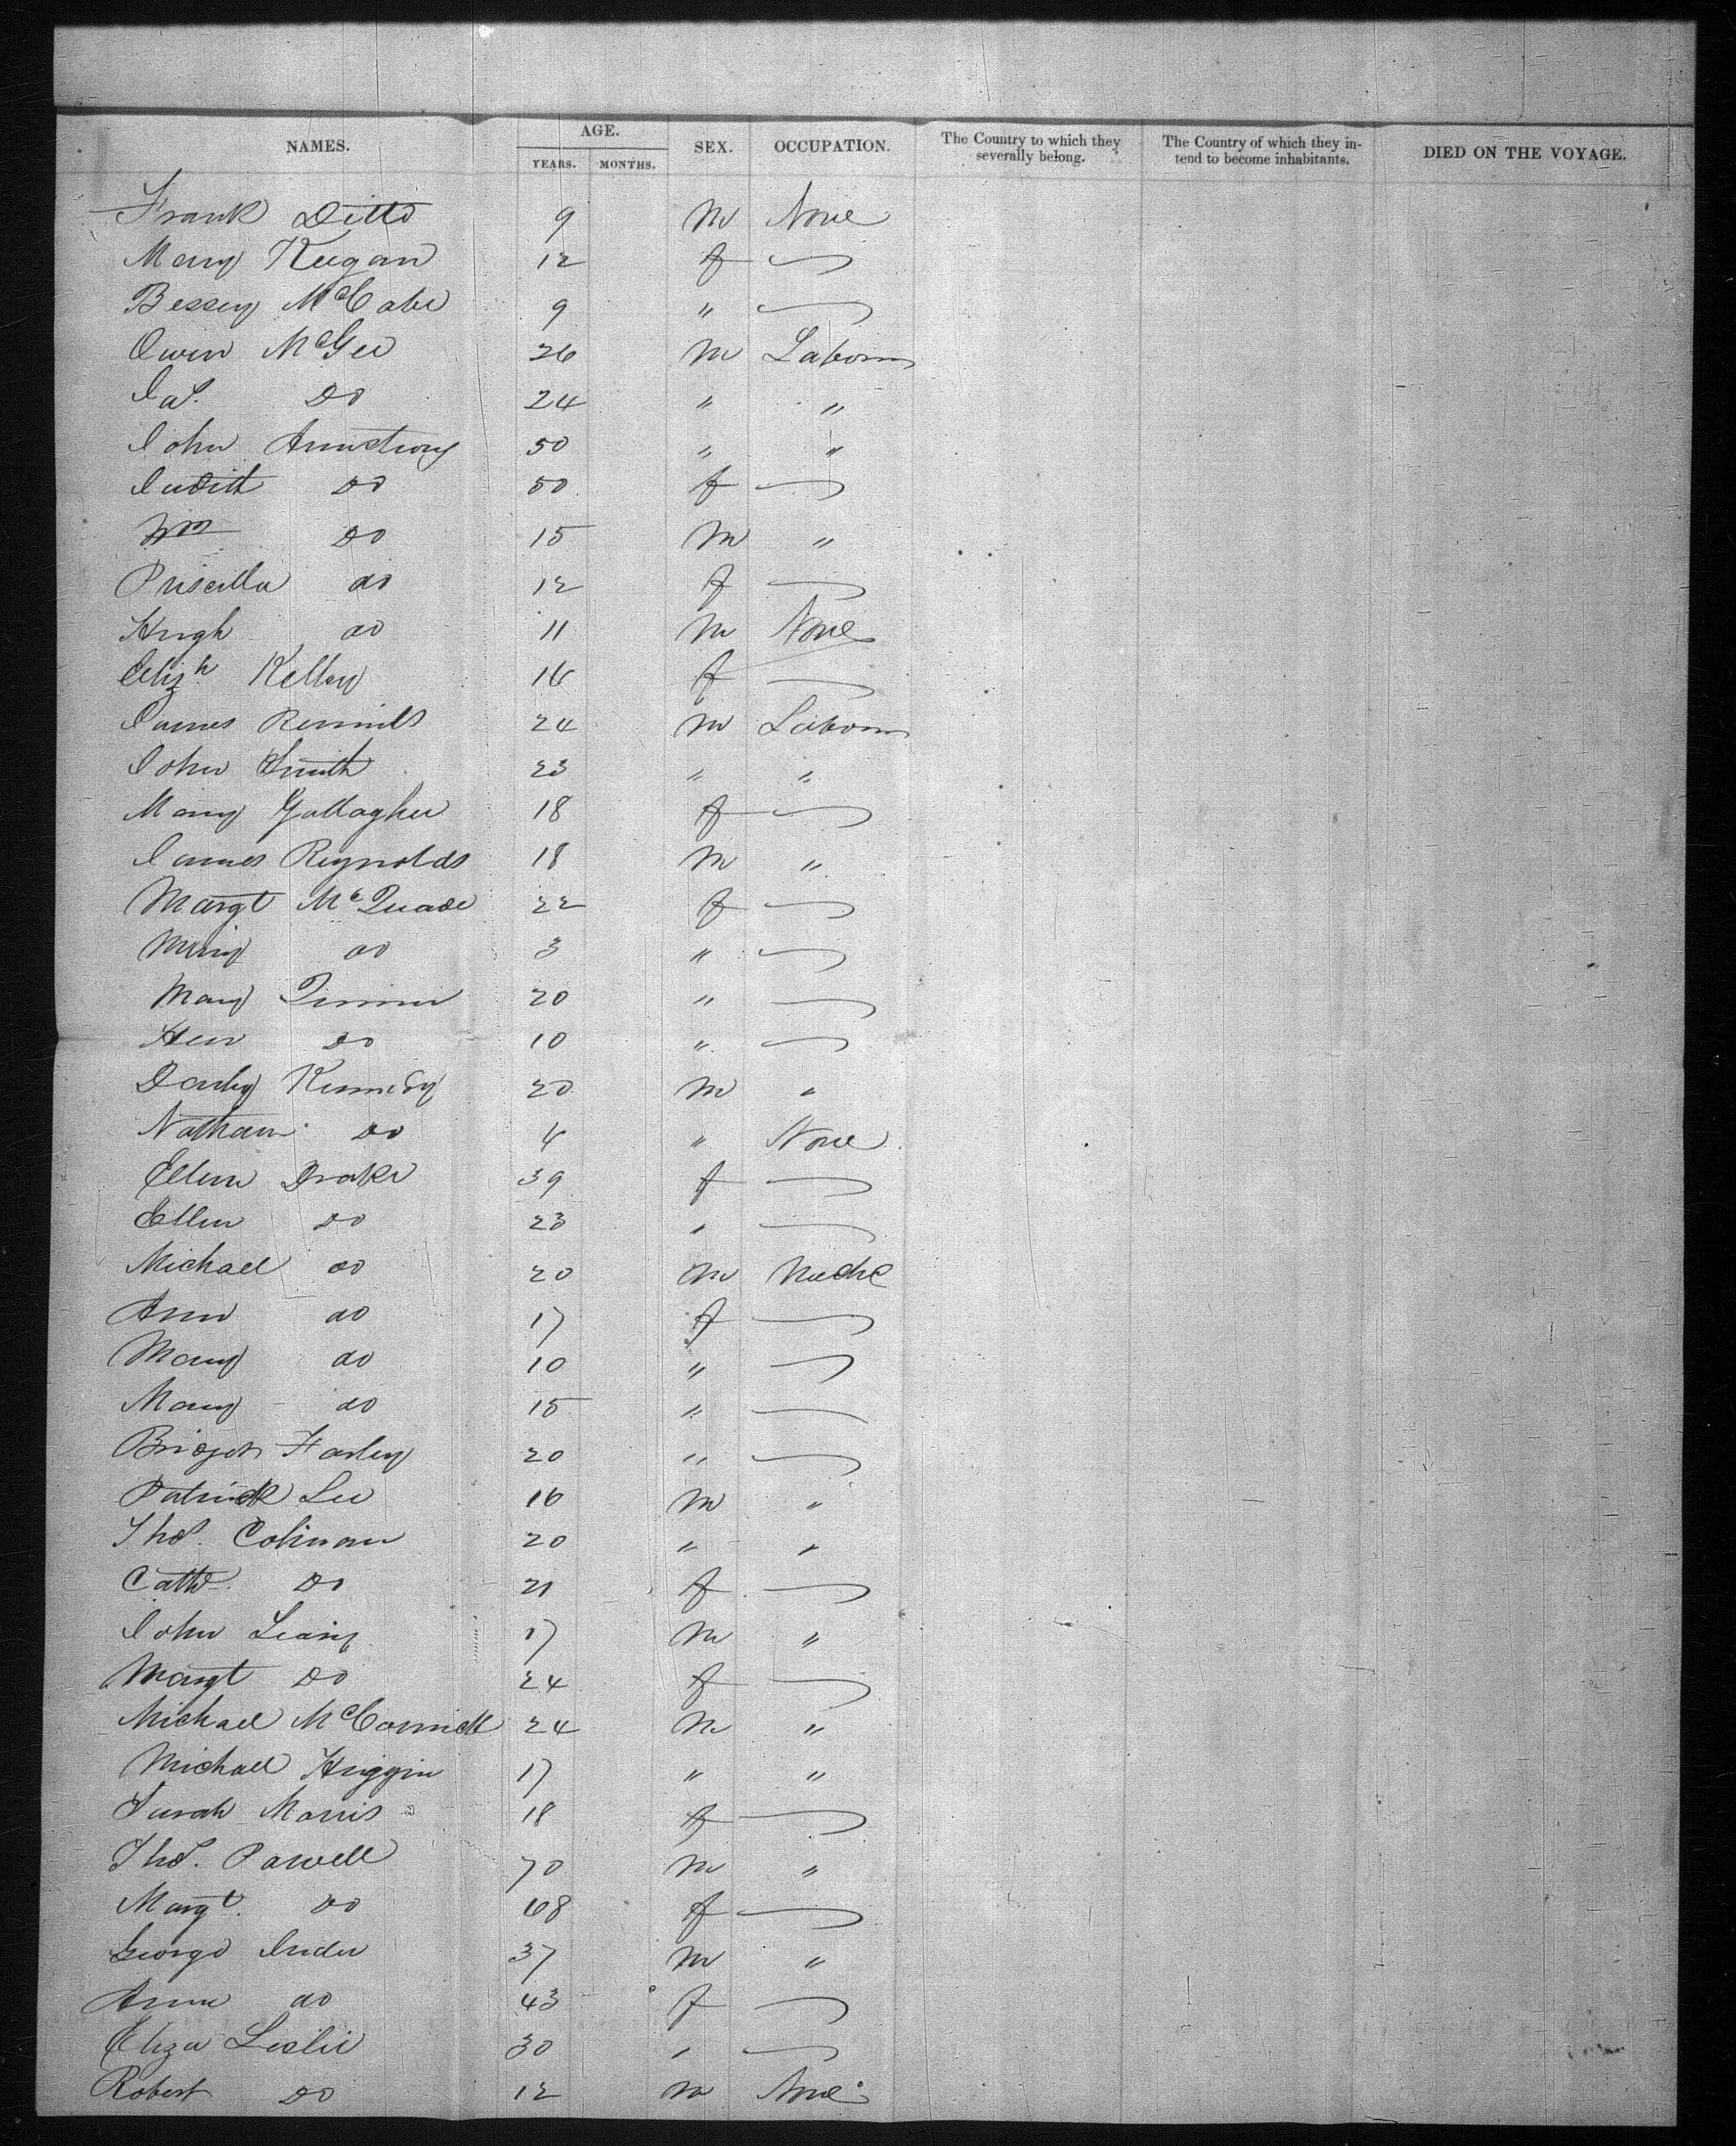 NAMES. AGE. SEX. OCCUPATION. The Country to which they severally belong. The Country of which they intend to become inhabitants. DIED ON THE VOYAGE.
YEARS. MONTHS.
Frank Ditto 9 M None
Mary Keegan 12 f
Bessey McCabe 9 "
Owen McGee 26 M Laborer
Jas. Do 24 " "
John Armstrong 50 " "
Judith Do 50 f
Wm Do 15 M "
Priscilla do 12 f
Hugh do 11 M None
Elizh Kelley 16 f
James 24 M Laborer
John Smith 23 " "
Mary Gallagher 18 f
James Reynolds 18 M "
Margt McQuade 22 f
Mary do 3 "
Mary 20 "
Do 10 "
Darby Kennedy 20 M "
Nathan Do 4 " None
Ellen Drake 39 f
Ellen Do 23 "
Michael do 20 M Meche
Ann do 17 f
Mary do 10 "
Mary do 15 "
Bridget Farley 20 "
Patrick Lee 16 M "
Thos. Colinan 20 " "
Cathe. Do 21 f
John 17 M "
Margt Do 24 f
Michael McCormick 24 M "
Michael Higgin 17 " "
Sarah Morris 18 f
Thos. Powell 70 M "
Margt. Do 68 f
George 37 M "
Ann do 43 f
Eliza Leslie 30 "
Robert Do 12 M None